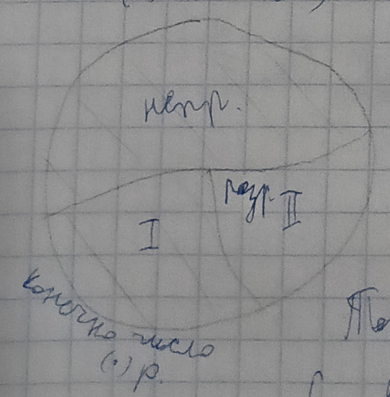 непр.
разр. II
I
конечно число
(•) р.
То